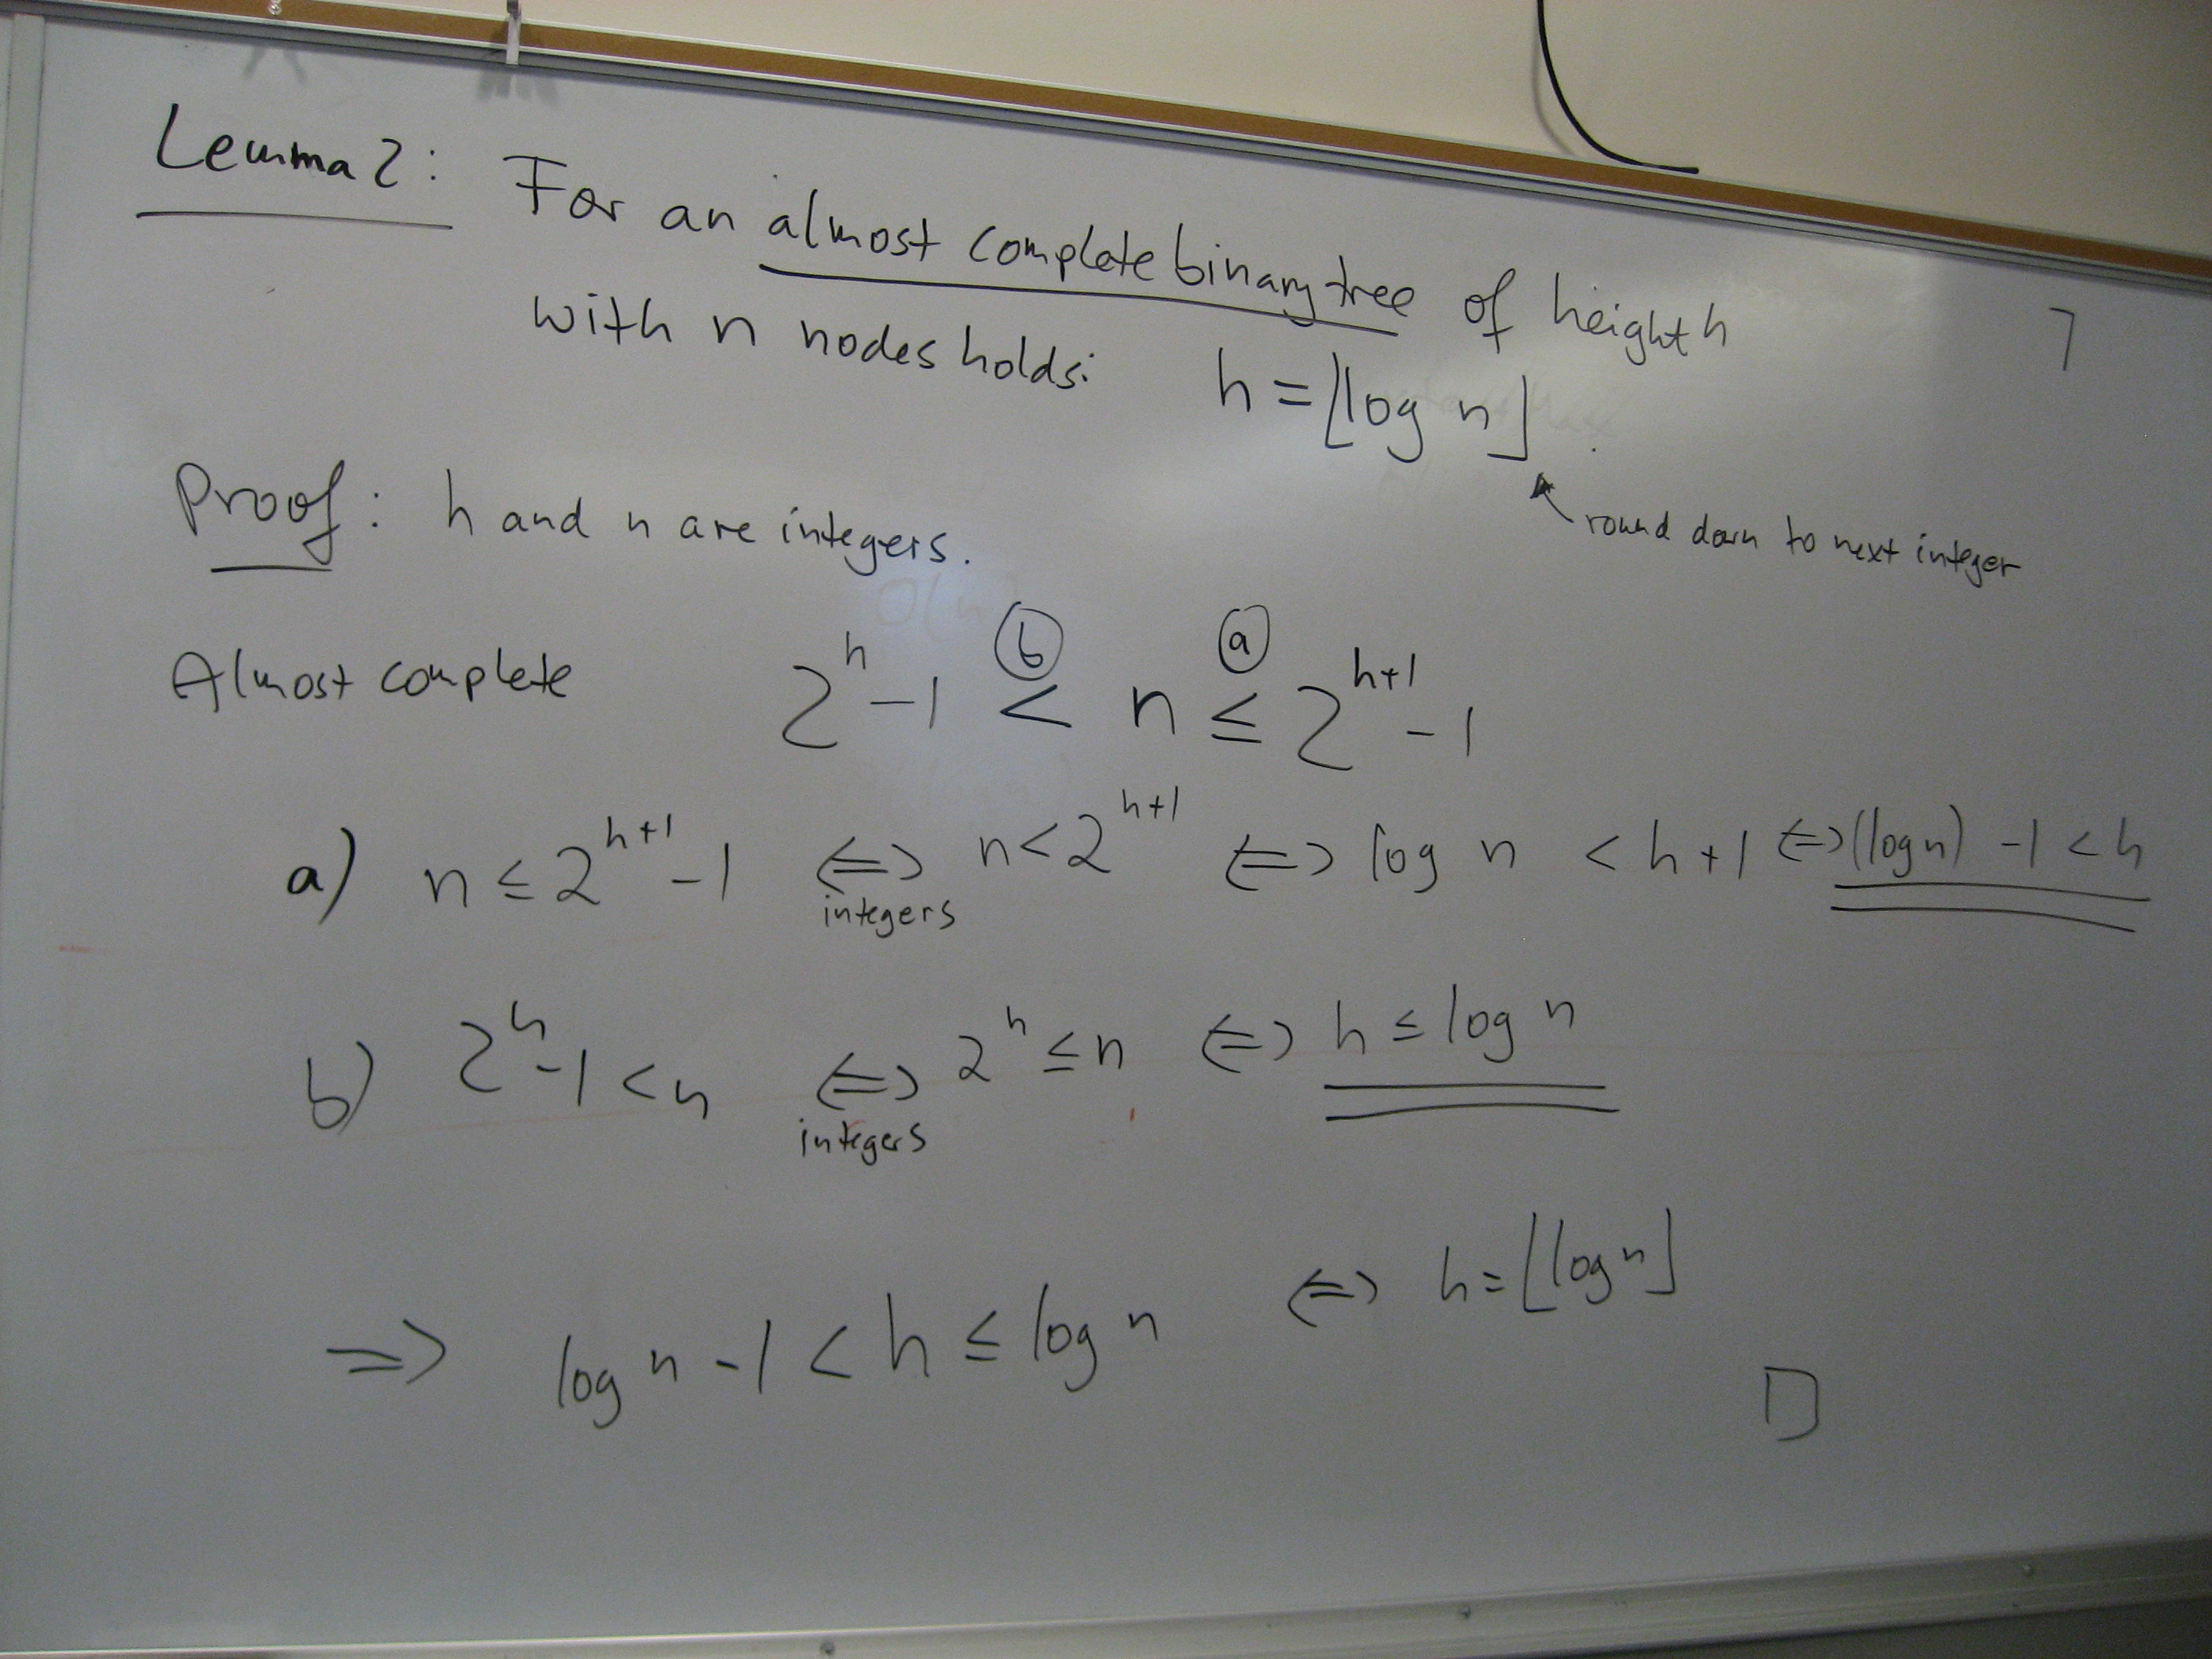 Lemma 2: For an almost complete binary tree of height h
7
with n nodes holds: h = ⌊log n⌋
round down to next integer
Proof: h and n are integers.
Almost complete 2^h - 1 < n ≤ 2^{h+1} - 1
b a
a) n ≤ 2^{h+1} - 1 ⇔ n < 2^{h+1} ⇔ log n < h + 1 ⇔ (log n) - 1 < h
integers
b) 2^h - 1 < n ⇔ 2^h ≤ n ⇔ h ≤ log n
integers
⇒ log n - 1 < h ≤ log n ⇔ h = ⌊log n⌋
□